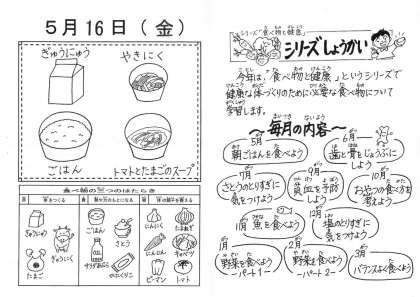 5月16日(金)
ぎゅうにゅう
やきにく
ごはん
トマトとたまごのスープ
食べ物の三つのはたらき
ぎゅうにゅう
ぎゅうにく
たまご
ごはん
さとう
サラダあぶら
こんにゃく
にんにく
たまねぎ
にんじん
キャベツ
ピーマン
トマト
シリーズ「食べ物と健康」
シリーズしょうかい
今年は、「食べ物と健康」というシリーズで
健康な体づくりのために必要な食べ物について
学習します。
～毎月の内容～
5月
朝ごはんを食べよう
6月
歯と骨をじょうぶにしよう
7月
さとうのとりすぎに
気をつけよう
9月
貧血を予防
しよう
10月
おやつの食べ方を
考えよう
11月
魚を食べよう
12月
塩のとりすぎに
気をつけよう
1月
野菜を食べよう
ーパート1ー
2月
野菜を食べよう
ーパート2ー
3月
バランスよく食べよう